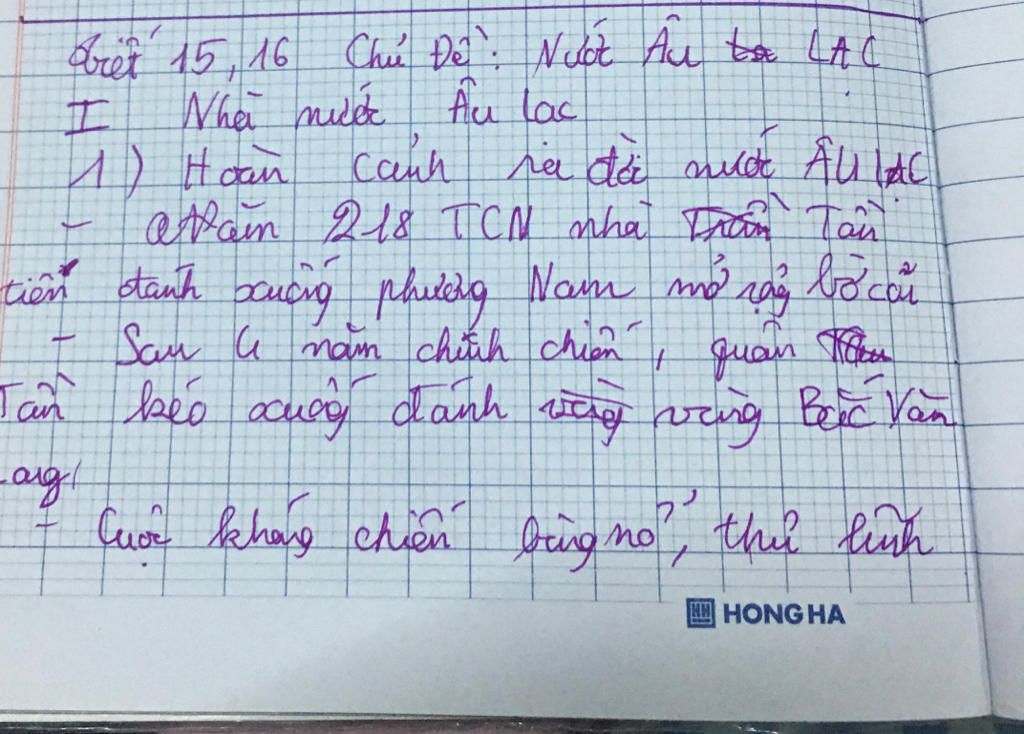 Tiết 15, 16 Chủ Đề: Nước Âu LẠC
I Nhà nước Âu Lạc
1) Hoàn cảnh ra đời nước ÂU LẠC
- Năm 218 TCN nhà Tần
tiến đánh xuống phương Nam mở rộng bờ cõi
- Sau 4 năm chinh chiến, quân
Tần kéo xuống đánh vùng Bắc Văn
Lang
- Cuộc kháng chiến bùng nổ, thủ lĩnh
HONG HA